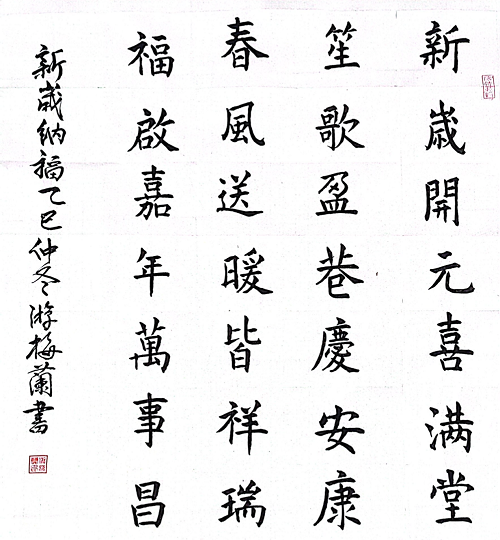 新歲開元喜满堂
笙歌盈巷慶安康
春風送暖皆祥瑞
福啟嘉年萬事昌
新歲纳福乙巳仲冬游梅蘭書